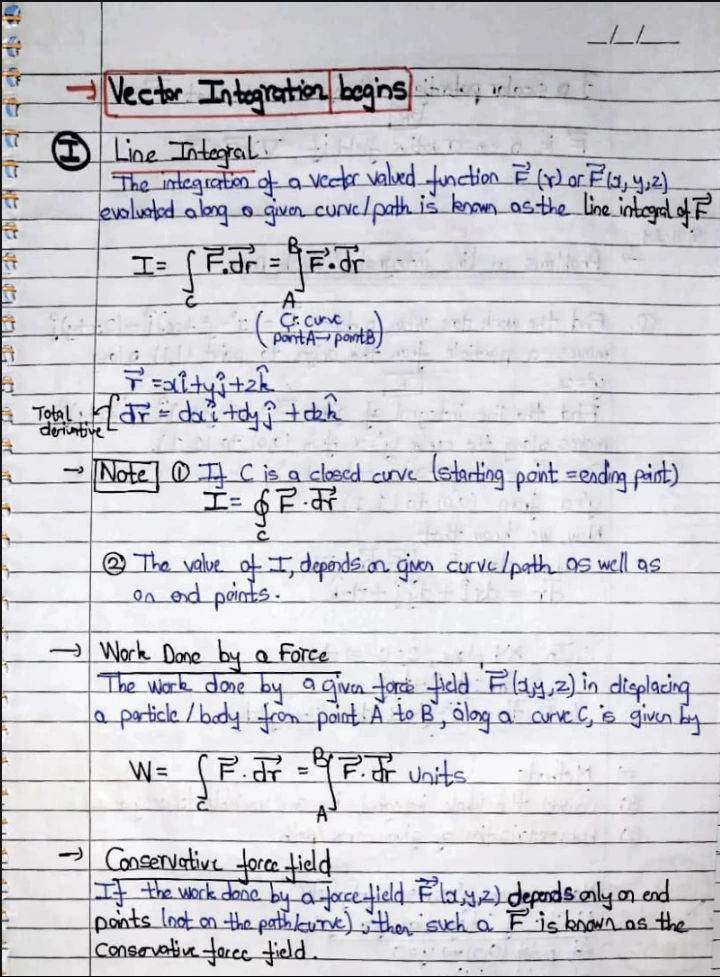 _/_/__
→ Vector Integration begins
I Line Integral
The integration of a vector valued function F⃗(r) or F⃗(x, y, z)
evaluated along a given curve/path is known as the line integral of F⃗
I = ∫_C F⃗.dr⃗ = ∫_A^B F⃗.dr⃗
(C: curve
point A → point B)
r⃗ = xî+yĵ+zk̂
Total derivative { dr⃗ = dxî + dyĵ + dzk̂
→ Note ① If C is a closed curve (starting point = ending point)
I = ∮_C F⃗.dr⃗
② The value of I, depends on given curve/path as well as
on end points.
→ Work Done by a Force
The work done by a given force field F⃗(x,y,z) in displacing
a particle/body from point A to B, along a curve C, is given by
W = ∫_C F⃗.dr⃗ = ∫_A^B F⃗.dr⃗ units
→ Conservative force field
If the work done by a force field F⃗(x,y,z) depends only on end
points (not on the path/curve), then such a F⃗ is known as the
Conservative force field.